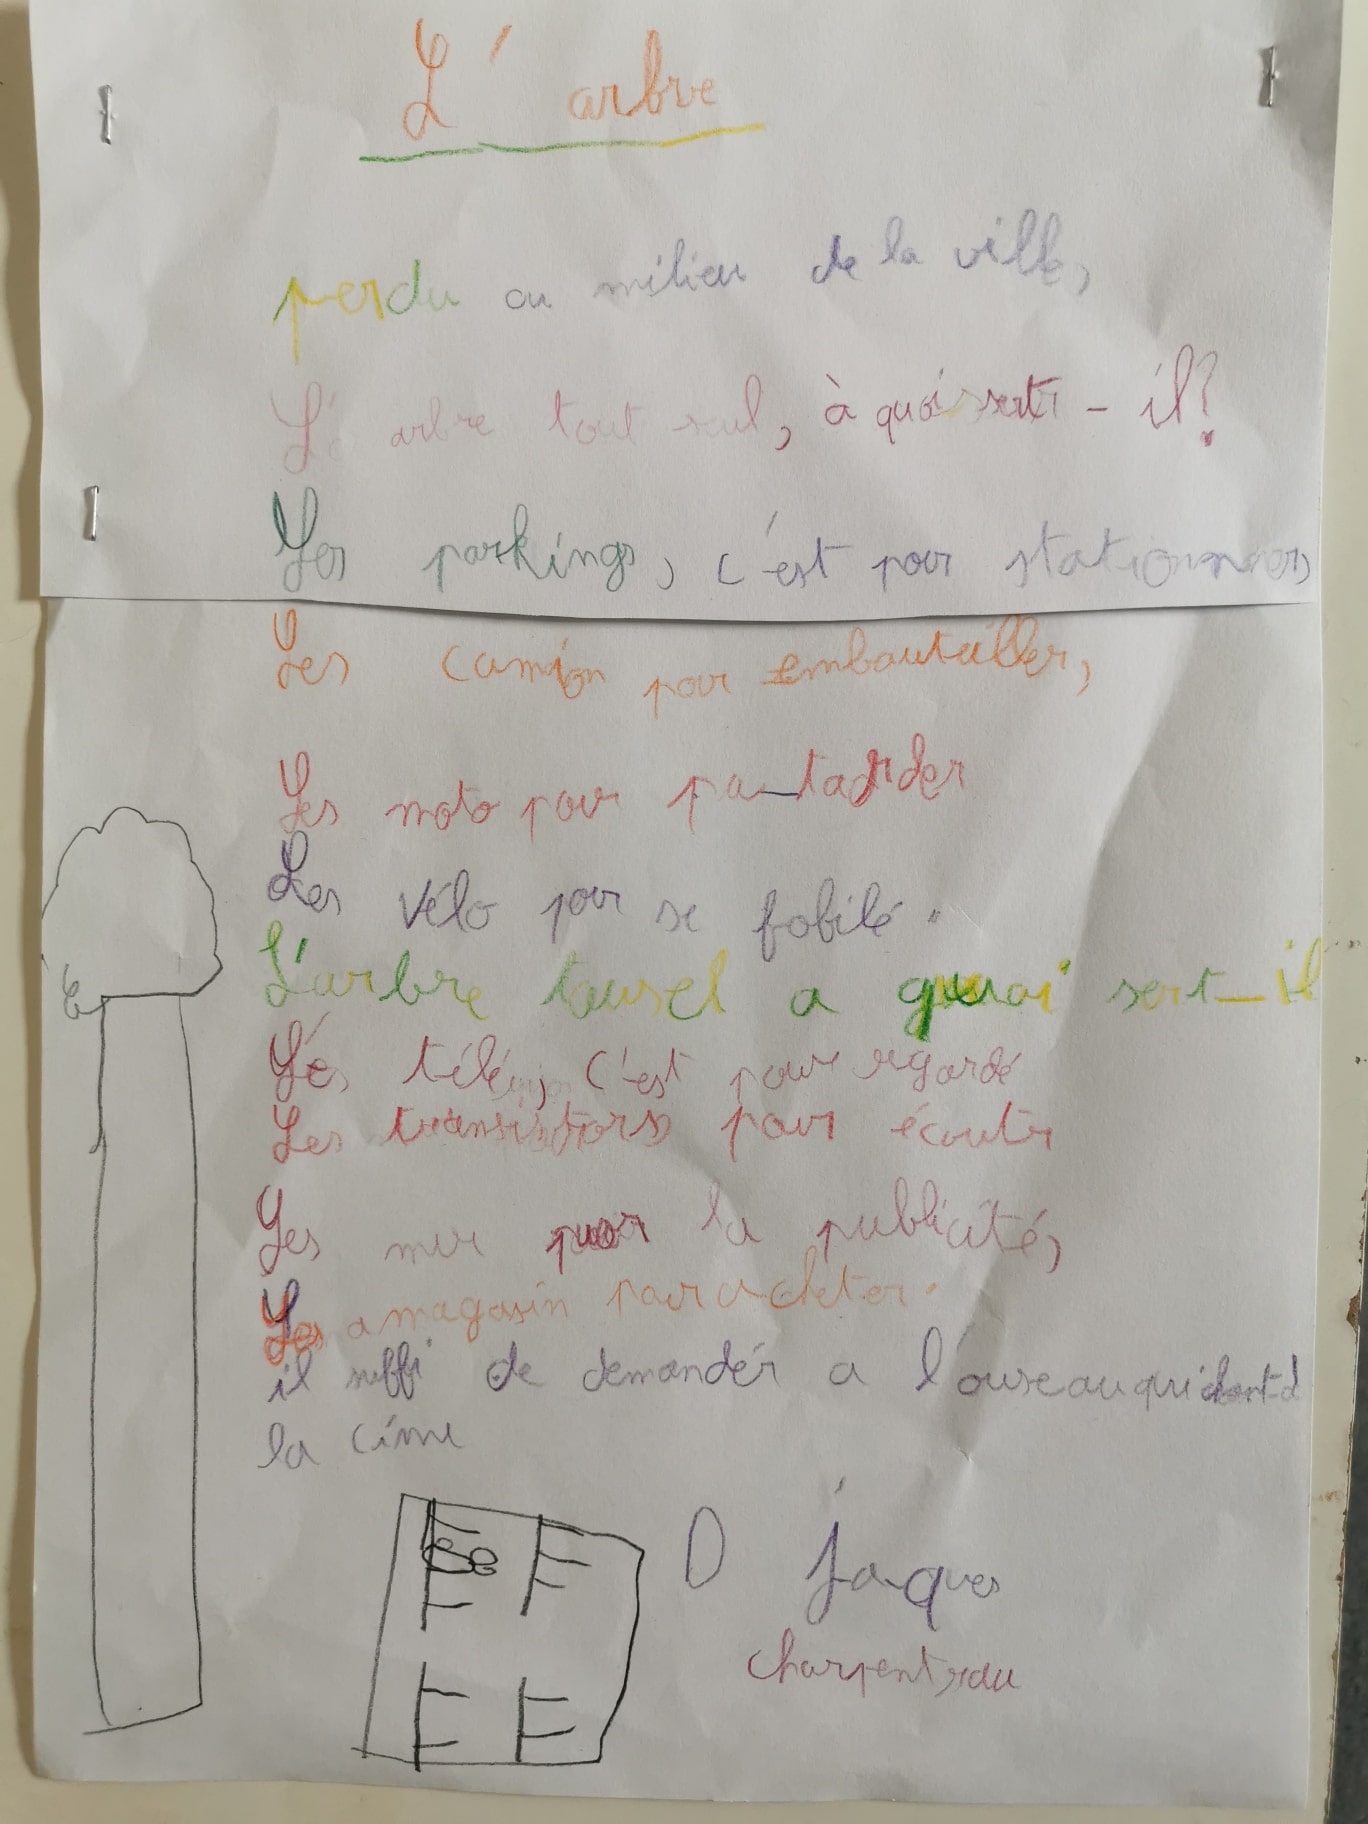 L'arbre
perdu au milieu de la ville,
L'arbre tout seul, à quoi sert-il?
Les parkings, c'est pour stationner,
Les camion pour embouteiller,
Les moto pour pa-tarder
Les vélo pour se fofilé.
L'arbre tousel a quoi sert-il
Lés télé, c'est pour regardé
Les transistors pour écouter
Les mur pour la publicité,
Les magasin pour acheter.
il suffi de demandér a l'ouseau qui chant
la cime
D jaques
charpentreau